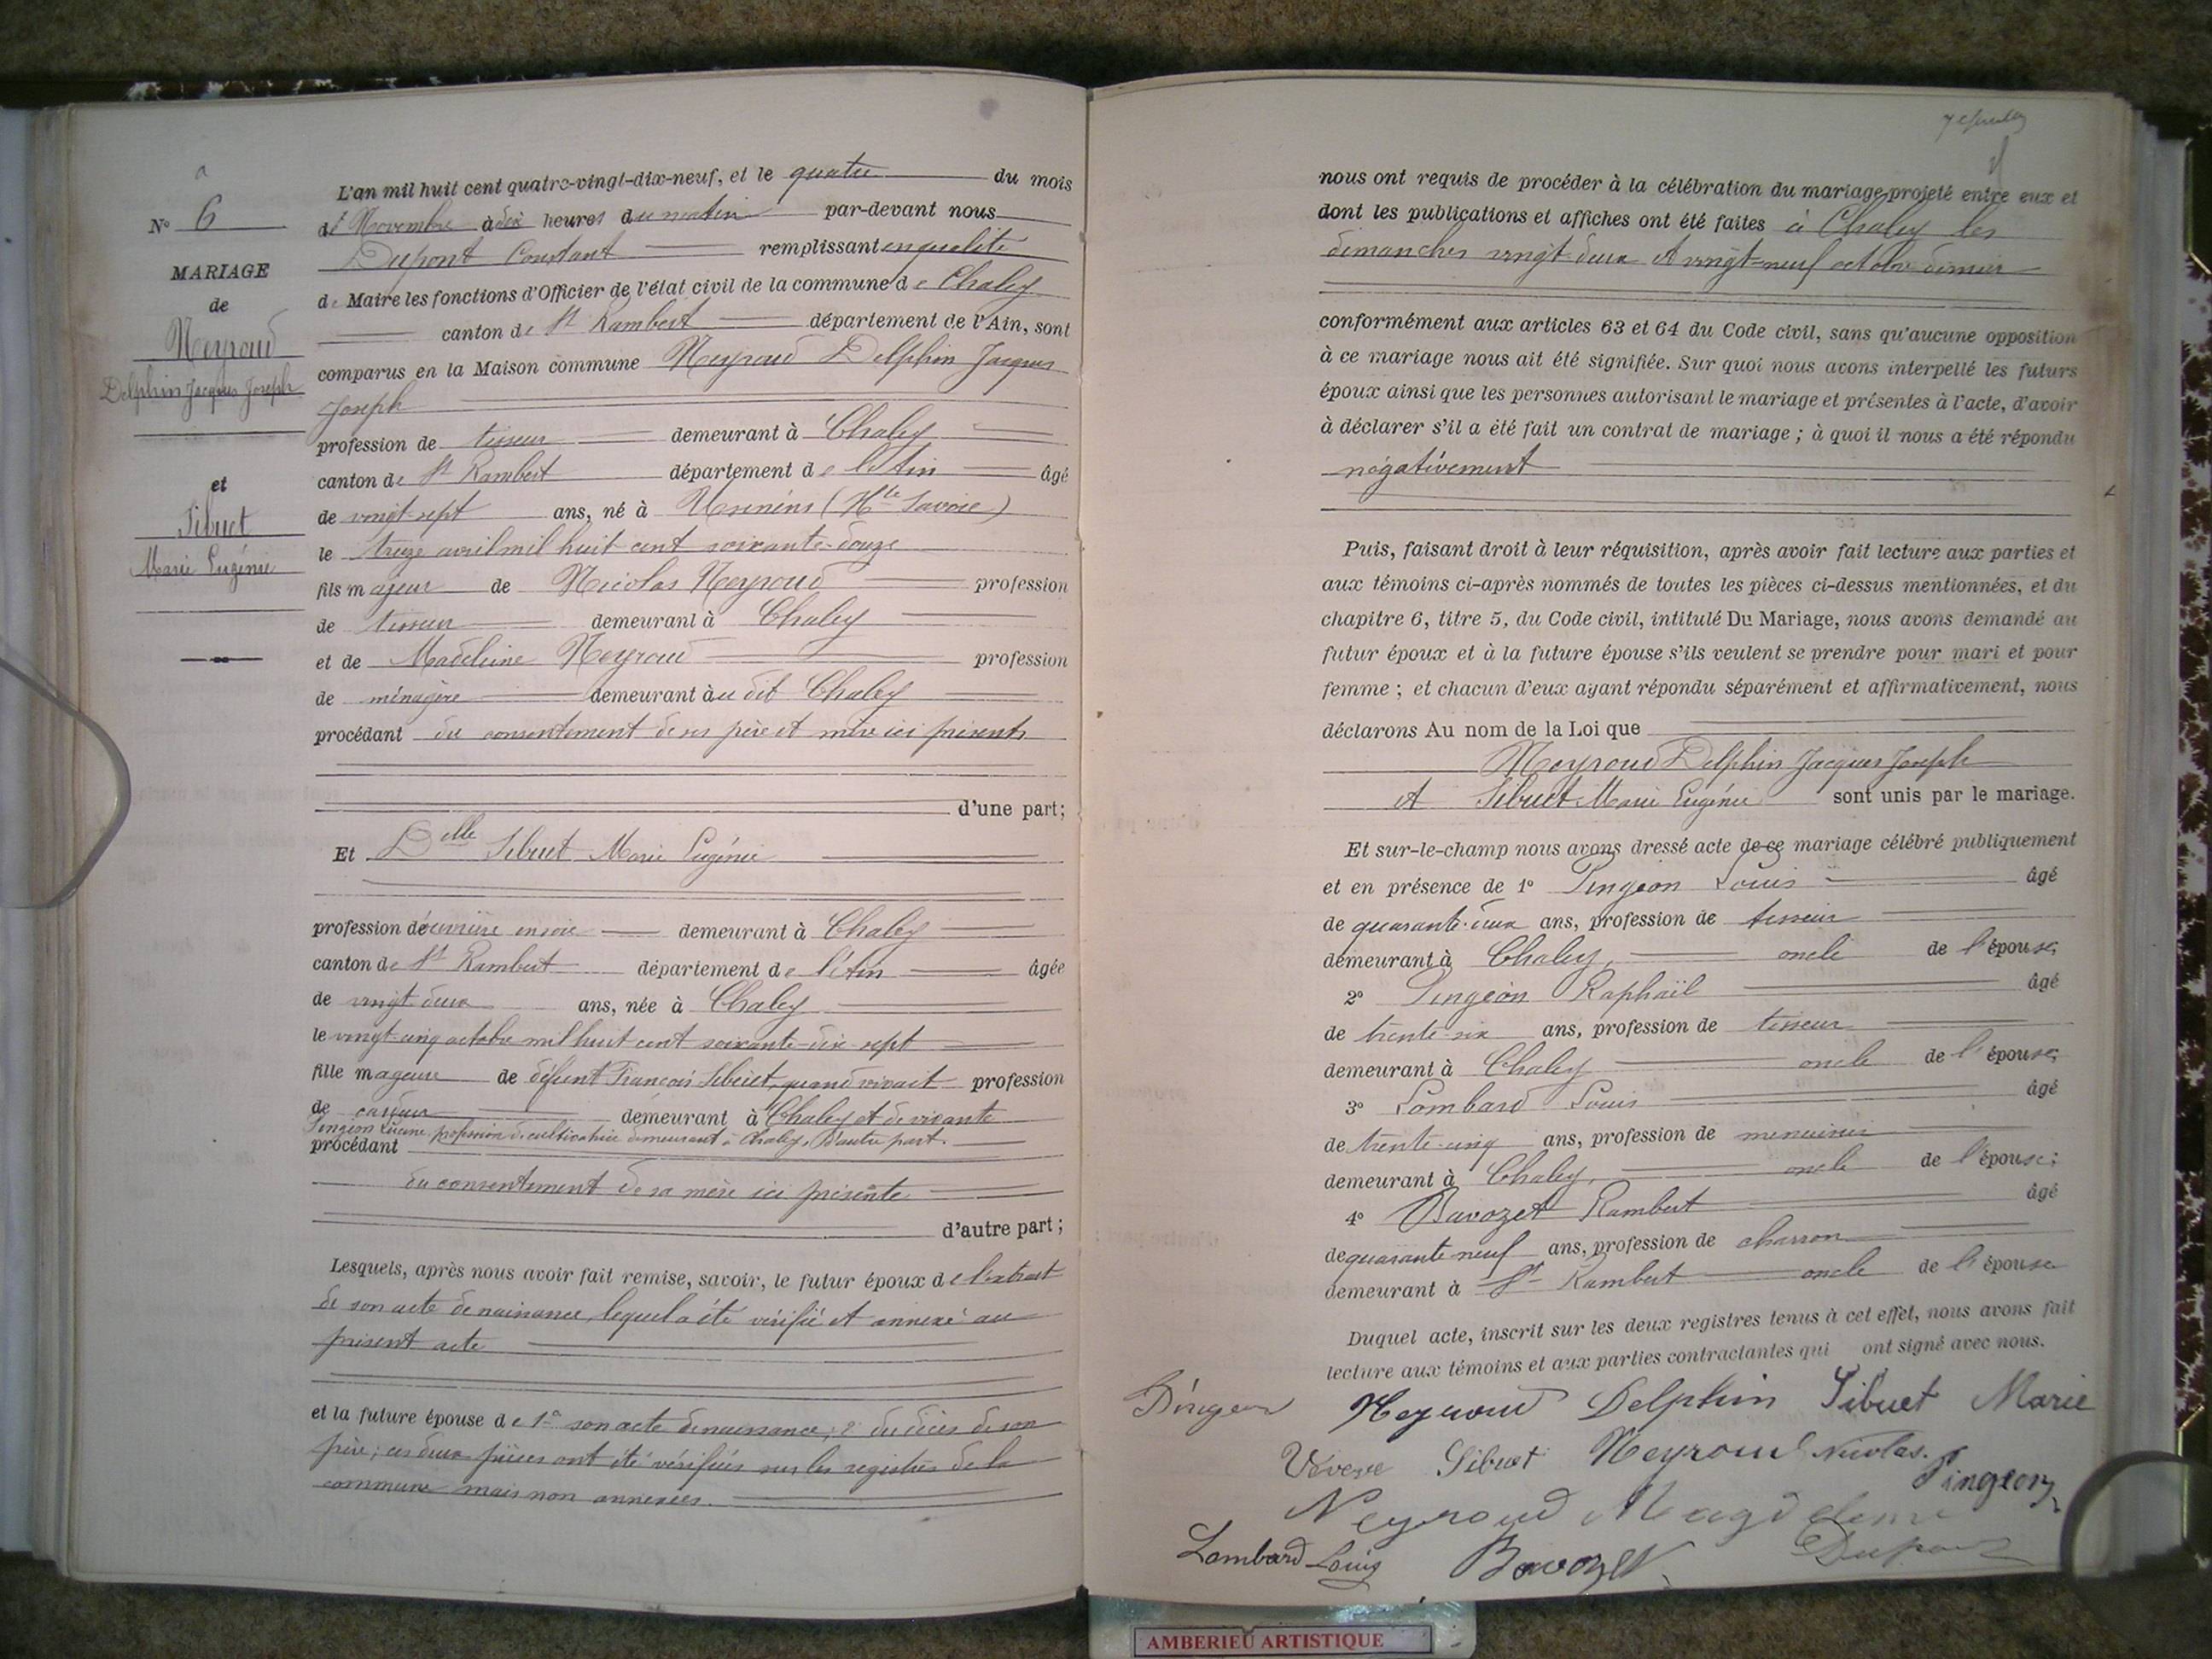 N° 6
MARIAGE
de
Neyroud
Delphin Jacques Joseph
et
Sibuet
Marie Eugénie
L'an mil huit cent quatre-vingt-dix-neuf, et le quatre du mois
de Novembre à dix heures du matin par-devant nous
Dupont Constant remplissant en qualité
de Maire les fonctions d'Officier de l'état civil de la commune de Chaley
canton de St Rambert département de l'Ain, sont
comparus en la Maison commune Neyroud Delphin Jacques
Joseph
profession de tisseur demeurant à Chaley
canton de St Rambert département de l'Ain âgé
de vingt-sept ans, né à Usinens (Hte Savoie)
le treize avril mil huit cent soixante-douze
fils majeur de Nicolas Neyroud profession
de tisseur demeurant à Chaley
et de Madeleine Neyroud profession
de ménagère demeurant au dit Chaley
procédant du consentement de ses père et mère ici présents
d'une part;
Et Delle Sibuet Marie Eugénie
profession d'ouvrière en soie demeurant à Chaley
canton de St Rambert département de l'Ain âgée
de vingt deux ans, née à Chaley
le vingt-cinq octobre mil huit cent soixante-dix-sept
fille mageure de défunt François Sibuet, quand vivait profession
de cardeur demeurant à Chaley et de vivante
Pingeon Lucine profession de cultivatrice demeurant à Chaley, D'autre part.
procédant
du consentement de sa mère ici présente
d'autre part;
Lesquels, après nous avoir fait remise, savoir, le futur époux de l'extrait
de son acte de naissance, lequel a été vérifié et annexé au
présent acte
et la future épouse de 1° son acte de naissance; 2° du décès de son
père; ces deux pièces ont été vérifiées sur les registres de la
commune mais non annexées.
nous ont requis de procéder à la célébration du mariage projeté entre eux et
dont les publications et affiches ont été faites à Chaley les
dimanches vingt-deux et vingt-neuf octobre dernier
conformément aux articles 63 et 64 du Code civil, sans qu'aucune opposition
à ce mariage nous ait été signifiée. Sur quoi nous avons interpellé les futurs
époux ainsi que les personnes autorisant le mariage et présentes à l'acte, d'avoir
à déclarer s'il a été fait un contrat de mariage; à quoi il nous a été répondu
négativement
Puis, faisant droit à leur réquisition, après avoir fait lecture aux parties et
aux témoins ci-après nommés de toutes les pièces ci-dessus mentionnées, et du
chapitre 6, titre 5, du Code civil, intitulé Du Mariage, nous avons demandé au
futur époux et à la future épouse s'ils veulent se prendre pour mari et pour
femme; et chacun d'eux ayant répondu séparément et affirmativement, nous
déclarons Au nom de la Loi que
Neyroud Delphin Jacques Joseph
et Sibuet Marie Eugénie sont unis par le mariage.
Et sur-le-champ nous avons dressé acte de ce mariage célébré publiquement
et en présence de 1° Pingeon Louis âgé
de quarante-deux ans, profession de tisseur
demeurant à Chaley, oncle de l'épouse;
2° Pingeon Raphaïl âgé
de trente-six ans, profession de tisseur
demeurant à Chaley oncle de l'épouse;
3° Lombard Louis âgé
de trente-cinq ans, profession de menuisier
demeurant à Chaley, oncle de l'épouse;
4° Bavozet Rambert âgé
de quarante neuf ans, profession de charron
demeurant à St Rambert oncle de l'épouse
Duquel acte, inscrit sur les deux registres tenus à cet effet, nous avons fait
lecture aux témoins et aux parties contractantes qui ont signé avec nous.
Pingeon Neyroud Delphin Sibuet Marie
Veuve Sibuet Neyroud Nicolas. Pingeon
Neyroud Magdeleine
Lombard Louis Bavozet Dupont
AMBERIEU ARTISTIQUE